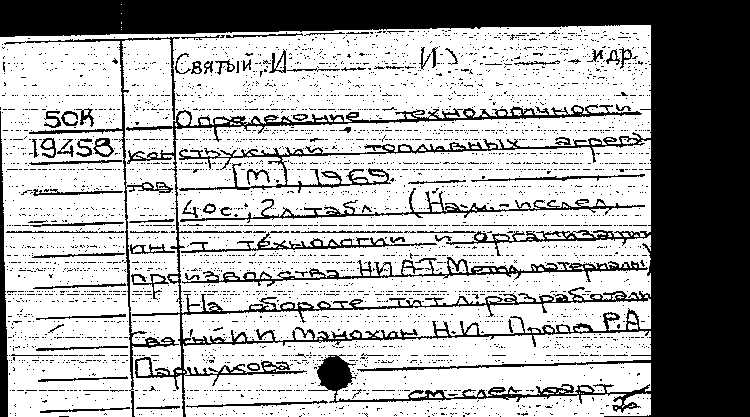 Святый, И И) и др.
50К Определение технологичности
19458 конструкций топливных агрега-
тов [М.], 1969.
40с.; 2л табл. (Науч.-исслед.
ин-т технологии и организации
производства НИАТ. Метод. материалы)
На обороте тит. л: разработали
Святый И.И, Манохин Н.И., Р.А,
Паршукова
см-след. карт